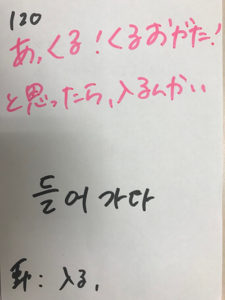 120
あ、くる！くるおがだ！
と思ったら、入るんかい
들어가다
動: 入る,